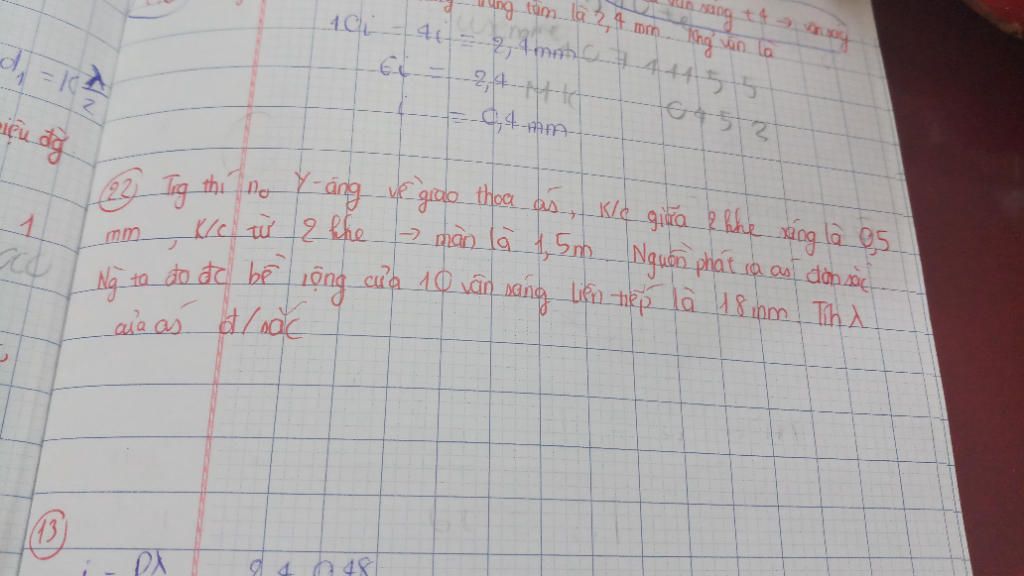 vân sáng + 4 → vân sáng
trung tâm là 2,4 mm. Khg vân là
10i - 4i = 2,4mm
6i = 2,4
i = 0,4 mm
6 4 5 2
d₁ = k λ/2
hiệu đg
1
(22) Trg thí no Y-âng về giao thoa ás, K/c giữa 2 khe sáng là 0,5
mm, K/c từ 2 khe → màn là 1,5m Nguồn phát ra ás đơn sắc
Ng ta đo đc bề rộng của 10 vân sáng liên tiếp là 18mm Tíh λ
của ás đ/sắc
(13)
i = Dλ